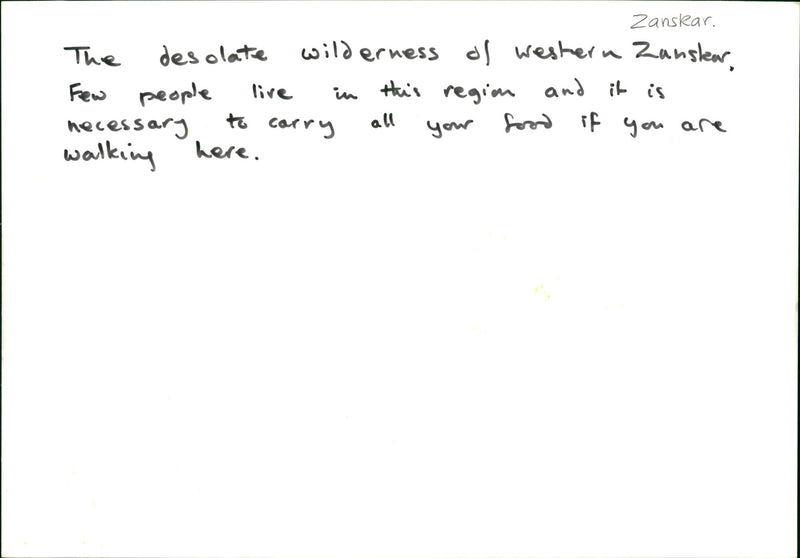 Zanskar.
The desolate wilderness of western Zanskar.
Few people live in this region and it is
necessary to carry all your food if you are
walking here.